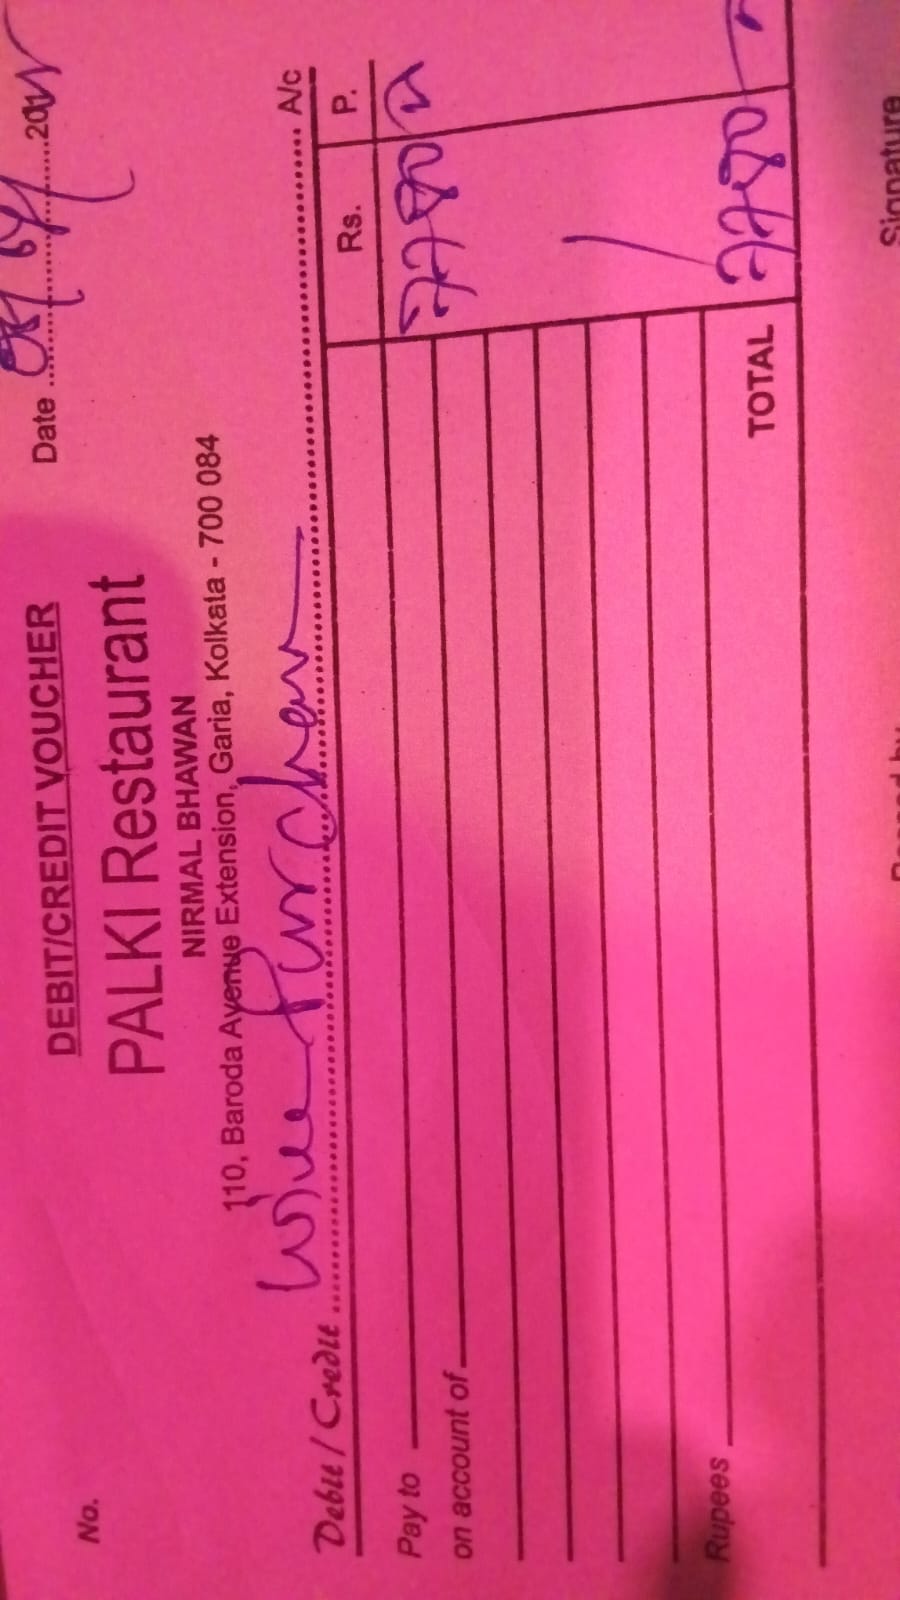 DEBIT/CREDIT VOUCHER
No.
Date
PALKI Restaurant
NIRMAL BHAWAN
110, Baroda Avenue Extension, Garia, Kolkata - 700 084
Debit / Credit Wine Purchew A/c
Rs. P.
Pay to 7780
on account of
Rupees
TOTAL 7780
Signature